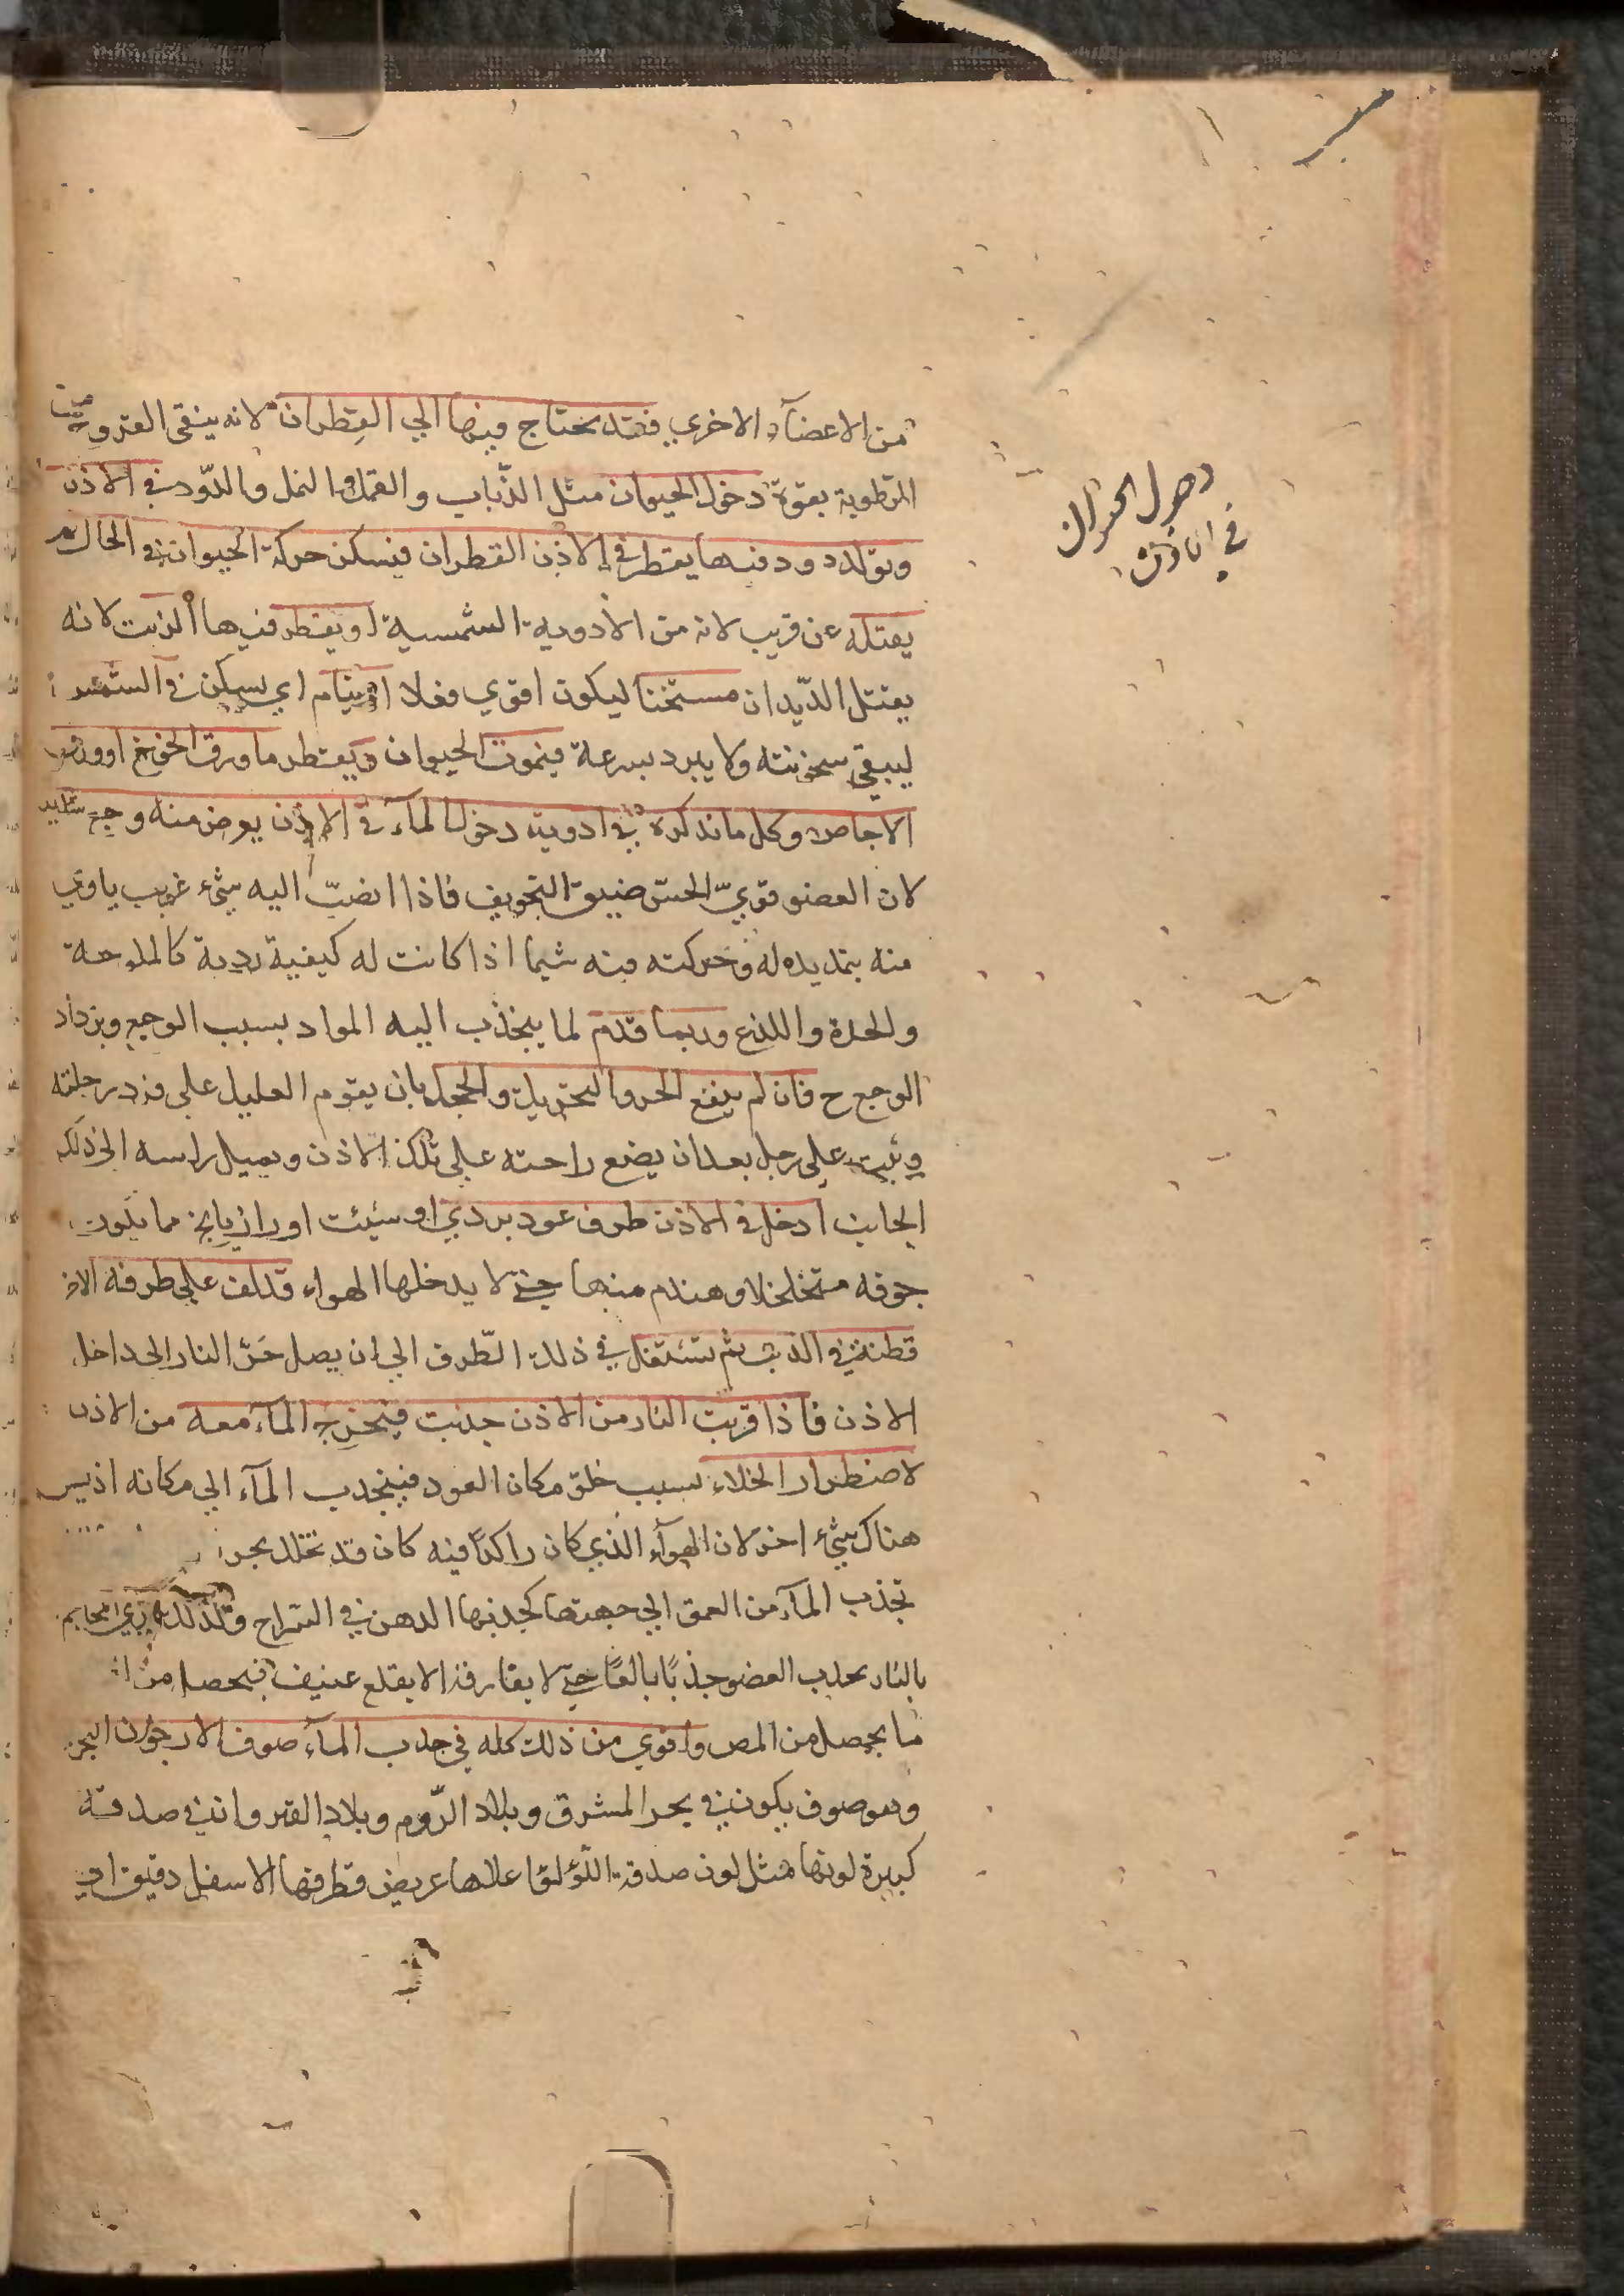 من الاعضآء الاخري فقد يحتاج فيها الي القطران لانه ينقى القروح من
الرطوبة بقوة دخول الحيوان مثل الذّباب والقمل والنمل والدّود في الاذن
وتولد دود فيها يقطر في الاذن القطران فيسكن حركة الحيوان في الحال ثم
يقتله عن قريب لانه من الأدوية الشمسية او يقطر فيها الزيت لانه
يقتل الدّيدان مسخنا ليكون اقوي فعلا او ينام اي يسكن في الشمس
ليبقي سخونته ولا يبرد بسرعة فيموت الحيوان ويقطر ماورق الخوخ او ورق
الاجاص وكل ما نذكره في ادوية دخول المآء في الاذن يعرض منه وجع شديد
لان العضو قويّ الحسّ ضيق التجويف فاذا انصبّ اليه شيء غريب ياذي
منه بتمديده له وحركته فيه سيما اذا كانت له كيفية ردية كالملوحة
والحدة واللذع وربما قدم لما ينجذب اليه المواد بسبب الوجع ويزداد
الوجع ح فان لم ينفع الحر والتحويل والحجل بان يقوم العليل علي فرد رجلته
ويثب علي رجل بعد ان يضع راحته علي تلك الاذن ويميل راسه الي ذلك
الجانب ادخل في الاذن طرف عود بردي او شبث او رازيانج مما يكون
جوفه متخلخلا وهندم فيها حتي لا يدخلها الهواء قد لف علي طرفه الاخر
قطنة في الزيت ثم تشتعل في ذلك الطّرف الي ان يصل حَرّ النار الي داخل
الاذن فاذا قربت النار من الاذن جذبت فيخرج المآء معه من الاذن
لاضطرار الخلاء بسبب خلق مكان العود فينجذب المآء الي مكانه اذ ليس
هناك شيء اخر لان الهوآء الذي كان راكدًا فيه كان قد تخلل بحر
تجذب المآء من العمق الي جهتها كجذبها الدهن في السراج وكذلك تري المحاجم
بالنار يجذب العضو جذبًا بالغًا حتي لا يفارقه الا بقلع عنيف فيحصل من
ما يحصل من المص واقوي من ذلك كله في جذب المآء صوف الارجوان البحري
وهو صوف يكون في بحر المشرق وبلاد الرّوم وبلاد القيروان في صدفة
كبيرة لونها مثل لون صدفة اللّؤلؤ اعلاها عريض وطرفها الاسفل دقيق
دخول الحيوان
في الاذن